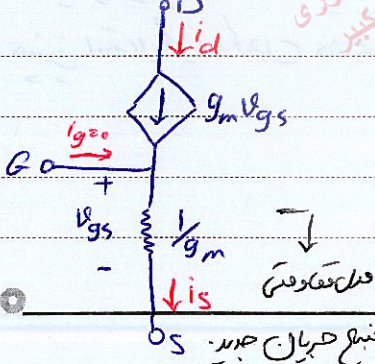 D
id
gm vgs
ig=0
G
+
vgs
1/gm
-
مدل مقاومتی
is
S
منبع جریان جدید.